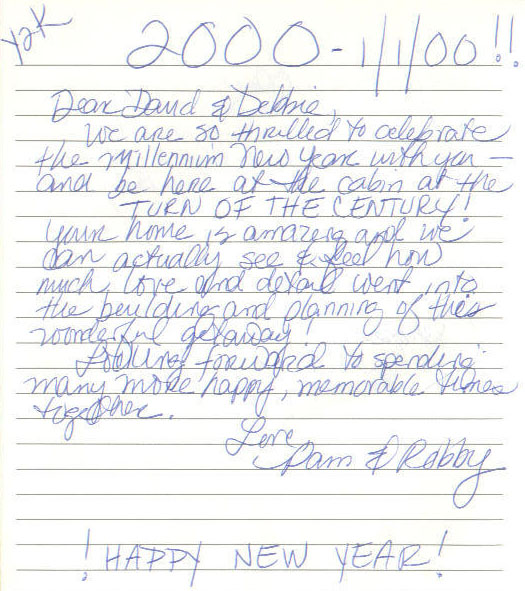 Y2K
2000 - 1/1/00!!
Dear David & Debbie,
We are so thrilled to celebrate
the millennium New Year with you —
and be here at the cabin at the
TURN OF THE CENTURY!
Your home is amazing and we
can actually see & feel how
much love and detail went into
the building and planning of this
wonderful getaway!
Looking forward to spending
many more happy, memorable times
together.
Love
Pam & Robby
! HAPPY NEW YEAR!